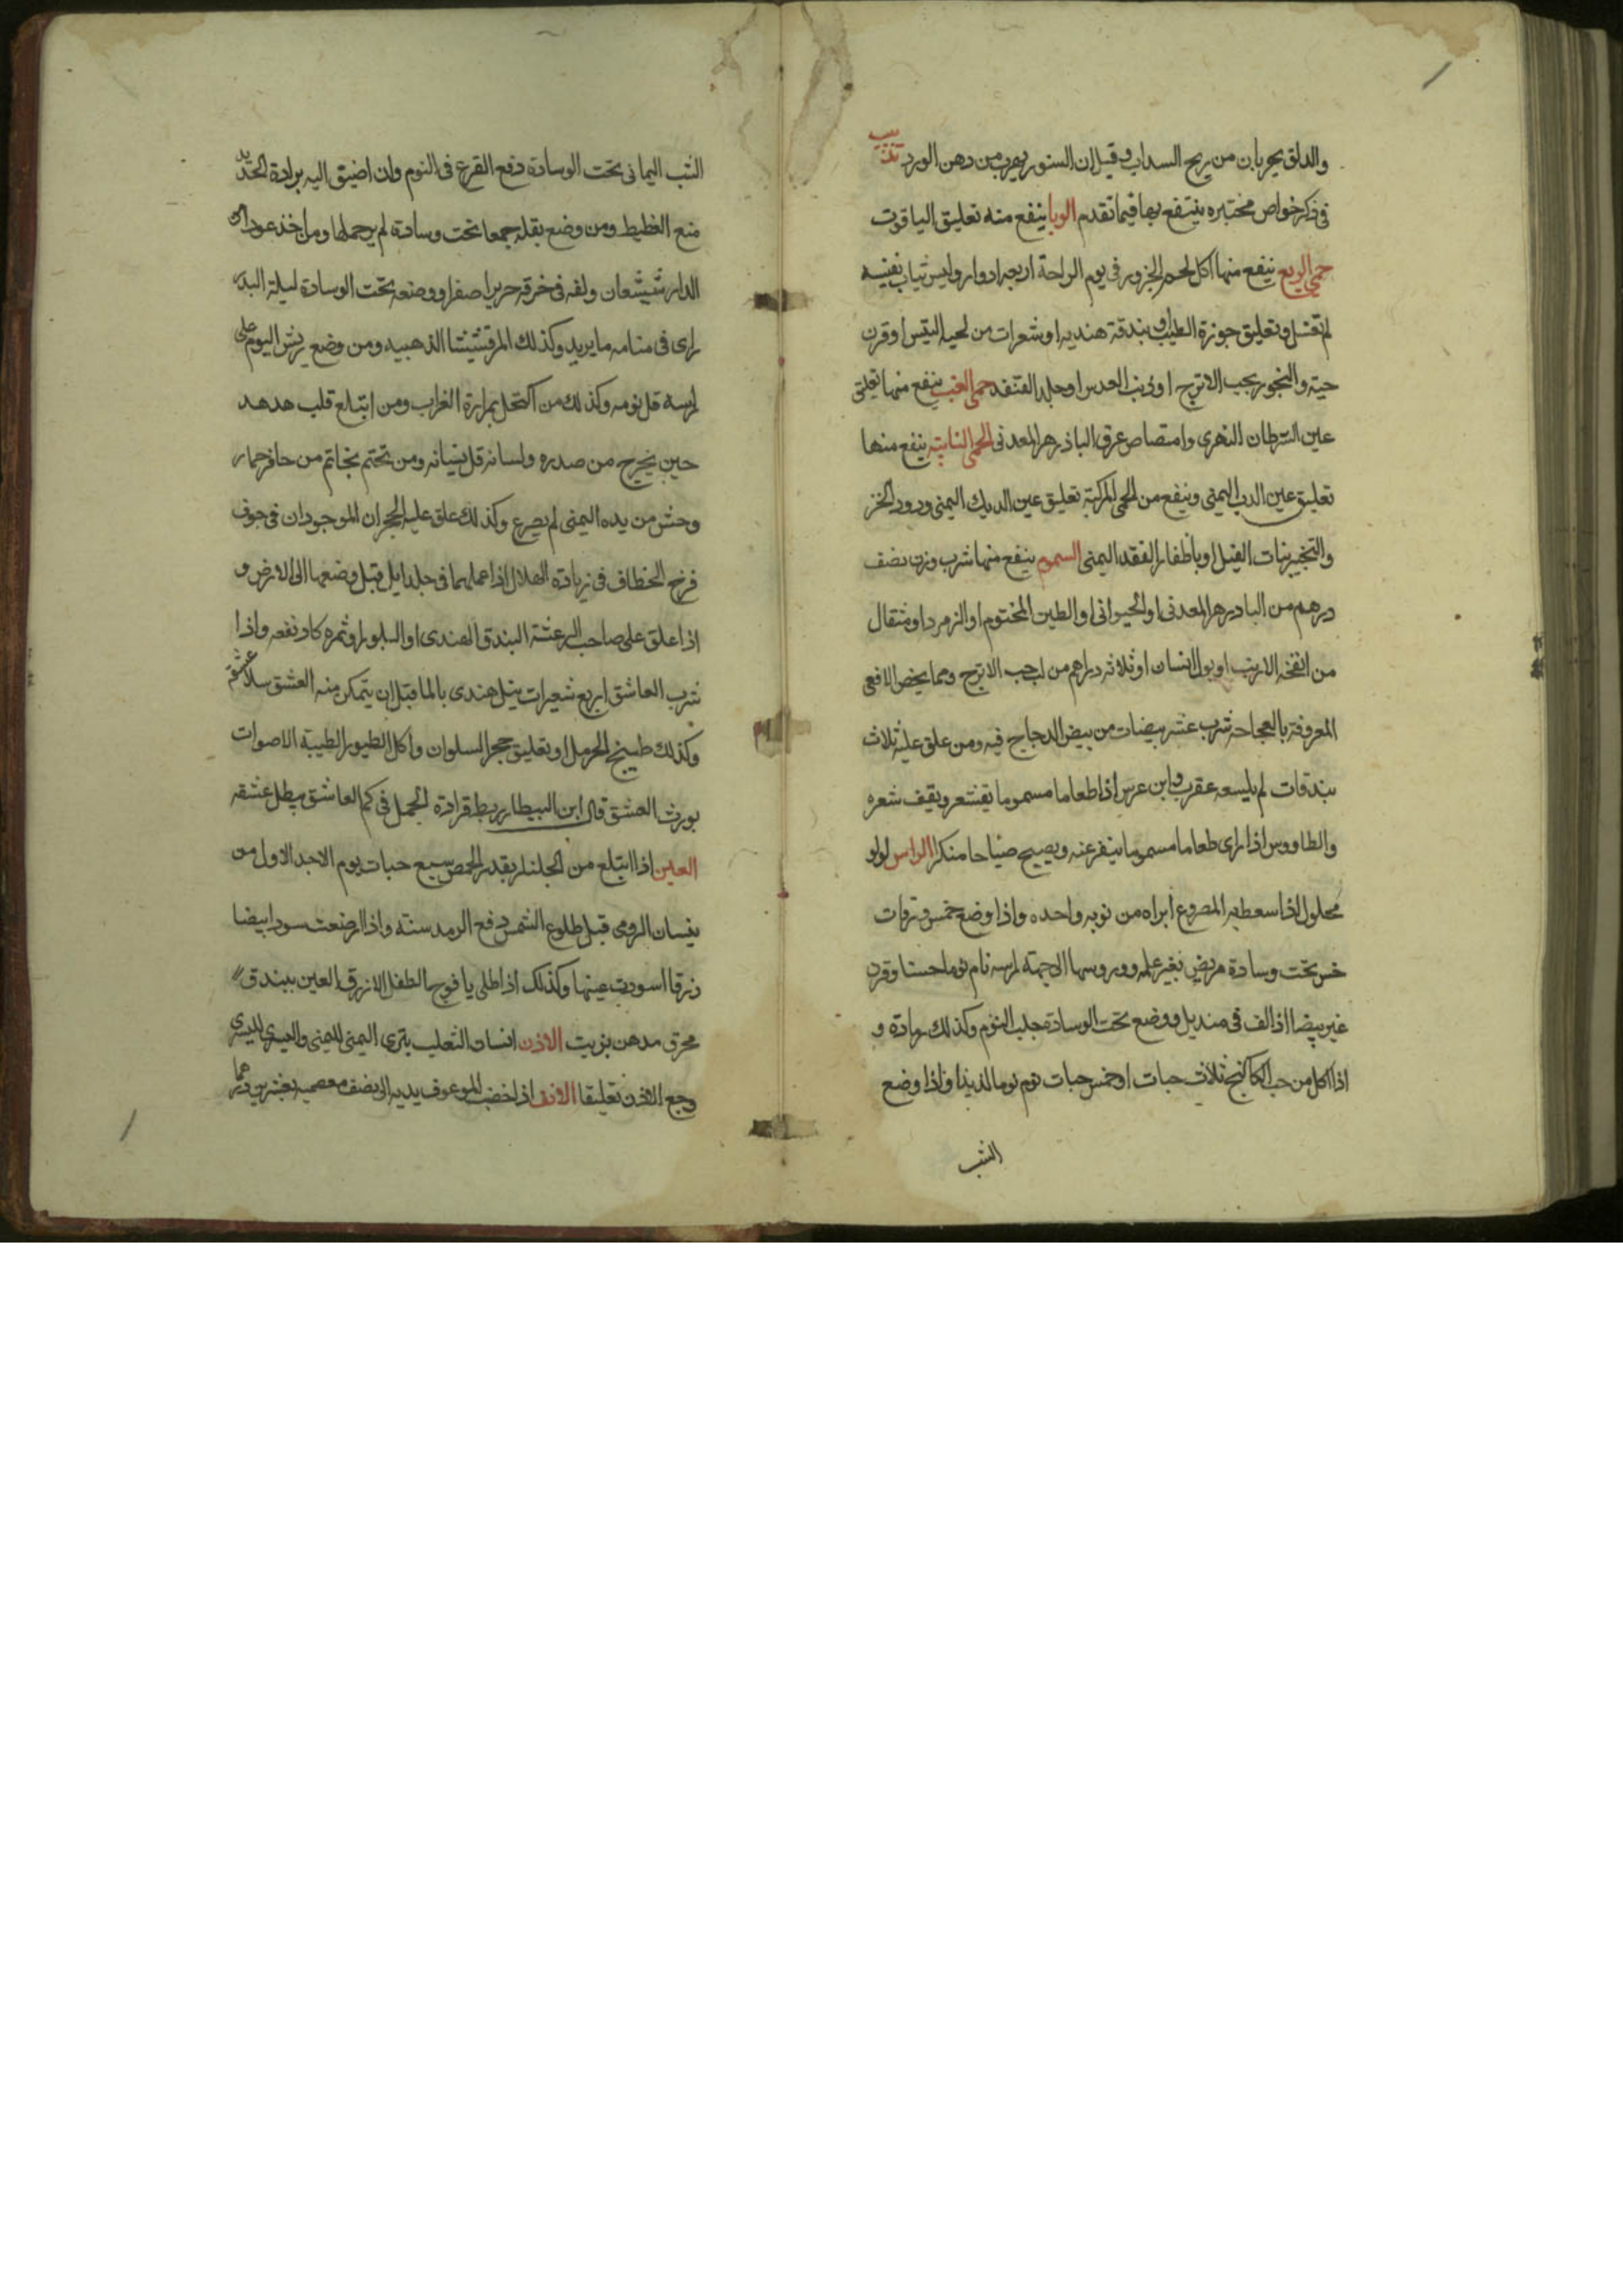 والدلق يهربان من ريح السداب وقيل ان السنور يهرب من دهن الورد تذنيب
فى ذكر خواص مختبره ينتفع بها فيما تقدم الوبا ينفع منه تعليق الياقوت
حمى الربع ينفع منها اكل لحم الجزور فى يوم الراحة اربعه ادوار ولبس ثياب نفيسه
لم تغسل وتعليق جوزة الطيب او بندقة هنديه او شعرات من لحيه التيس او قرن
حية والبخور بحب الاترج او زبد العدس او جلد القنفد حمى الغب ينفع منها تعليق
عين السرطان النهرى وامتصاص عرق الباذزهر المعدنى الحمى النايبه ينفع منها
تعليق عين الدب اليمنى وينفع من الحمى المركبة تعليق عين الديك اليمنى ودود الخز
والتبخير بنات الفيل او باظفار الفقد اليمنى السموم ينفع منها شرب وزن نصف
درهم من البادزهر المعدنى او الحيوانى او الطين المختوم او الزمرد او مثقال
من انفخه الارنب او بول الانسان او ثلاثه دراهم من لب حب الاترج ومما يخص الافعى
المعروفة بالعجاجه شرب عشر بيضات من بيض الدجاج فيه ومن علق عليه ثلاث
بندقات لم يلسعه عقرب وابن عرس اذا طعاما مسموما تقشعر ويقيف شعره
والطاووس اذا راى طعاما مسموما ينفر عنه ويصيح صياحا منكرا الراس لولو
محلول اذا سعط به المصروع ابراه من نوبه واحده واذا وضع خمس ورقات
خس تحت وسادة مريض بغير علمه وروسها الى جهة راسه نام نوما حسنا وقرن
عنز بيضا اذا لف فى منديل ووضع تحت الوسادة جلب النوم وكذلك رماده و
اذا اكل من حب الكاكنج ثلاث حبات او خمس حبات نوم نوما لذيذا واذا وضع
الشب
الشب اليمانى تحت الوسادة دفع القرع فى النوم وان اضيق اليه برادة الحديد
منع الغطيط ومن وضع بقله جمعا تحت وسادته لم يرحملها ومن اخذ عود ان
الدارشيشعان ولفه فى خرقه حرير اصفر او وضعه تحت الوسادة ليلة البدر
راى فى منامه ما يريد وكذلك المرقشيشا الذهبيه ومن وضع ريش البوم على
راسه قل نومه وكذلك من اكتحل بمرارة الغراب ومن ابتلع قلب هدهد
حين يخرج من صدره ولسانه قل نسيانه ومن تختم بخاتم من حافر حمار
وحش من يده اليمنى لم يصرع وكذلك علق عليه الحجران الموجودان فى جوف
فرخ الخطاف فى زيادة الهلال اذا عملهما فى جلد ايل قبل وضعها الى الارض و
اذا علق على صاحب الرعشة البندق الهندى او البلور او ثمره كاد نفعه واذا
شرب العاشق اربع شعيرات نيل هندى بالما قبل ان يتمكن منه العشق سلا عشقه
وكذلك طبيخ الحرمل او تعليق حجر السلوان واكل الطيور الطيبة الاصوات
يورث العشق قال ابن البيطار ربط قرادة الجمل فى كم العاشق يبطل عشقه
العين اذا ابتلع من الجلنار بقدر الحمص سبع حبات يوم الاحد الاول من
نيسان الرومى قبل طلوع الشمس دفع الرمد سنة واذا ارضعت سودا بيضا
زرقا اسودت عينها وكذلك اذا طلى يافوح الطفل الازرق العين ببندق
محرق مدهن بزيت الاذن اسنان الثعلب يترى اليمنى لليمنى واليسرى لليسرى
وجع الاذن تعليقا الانف اذا خضب المرعوف يديه الى نصف معصميه بعشرين درهما